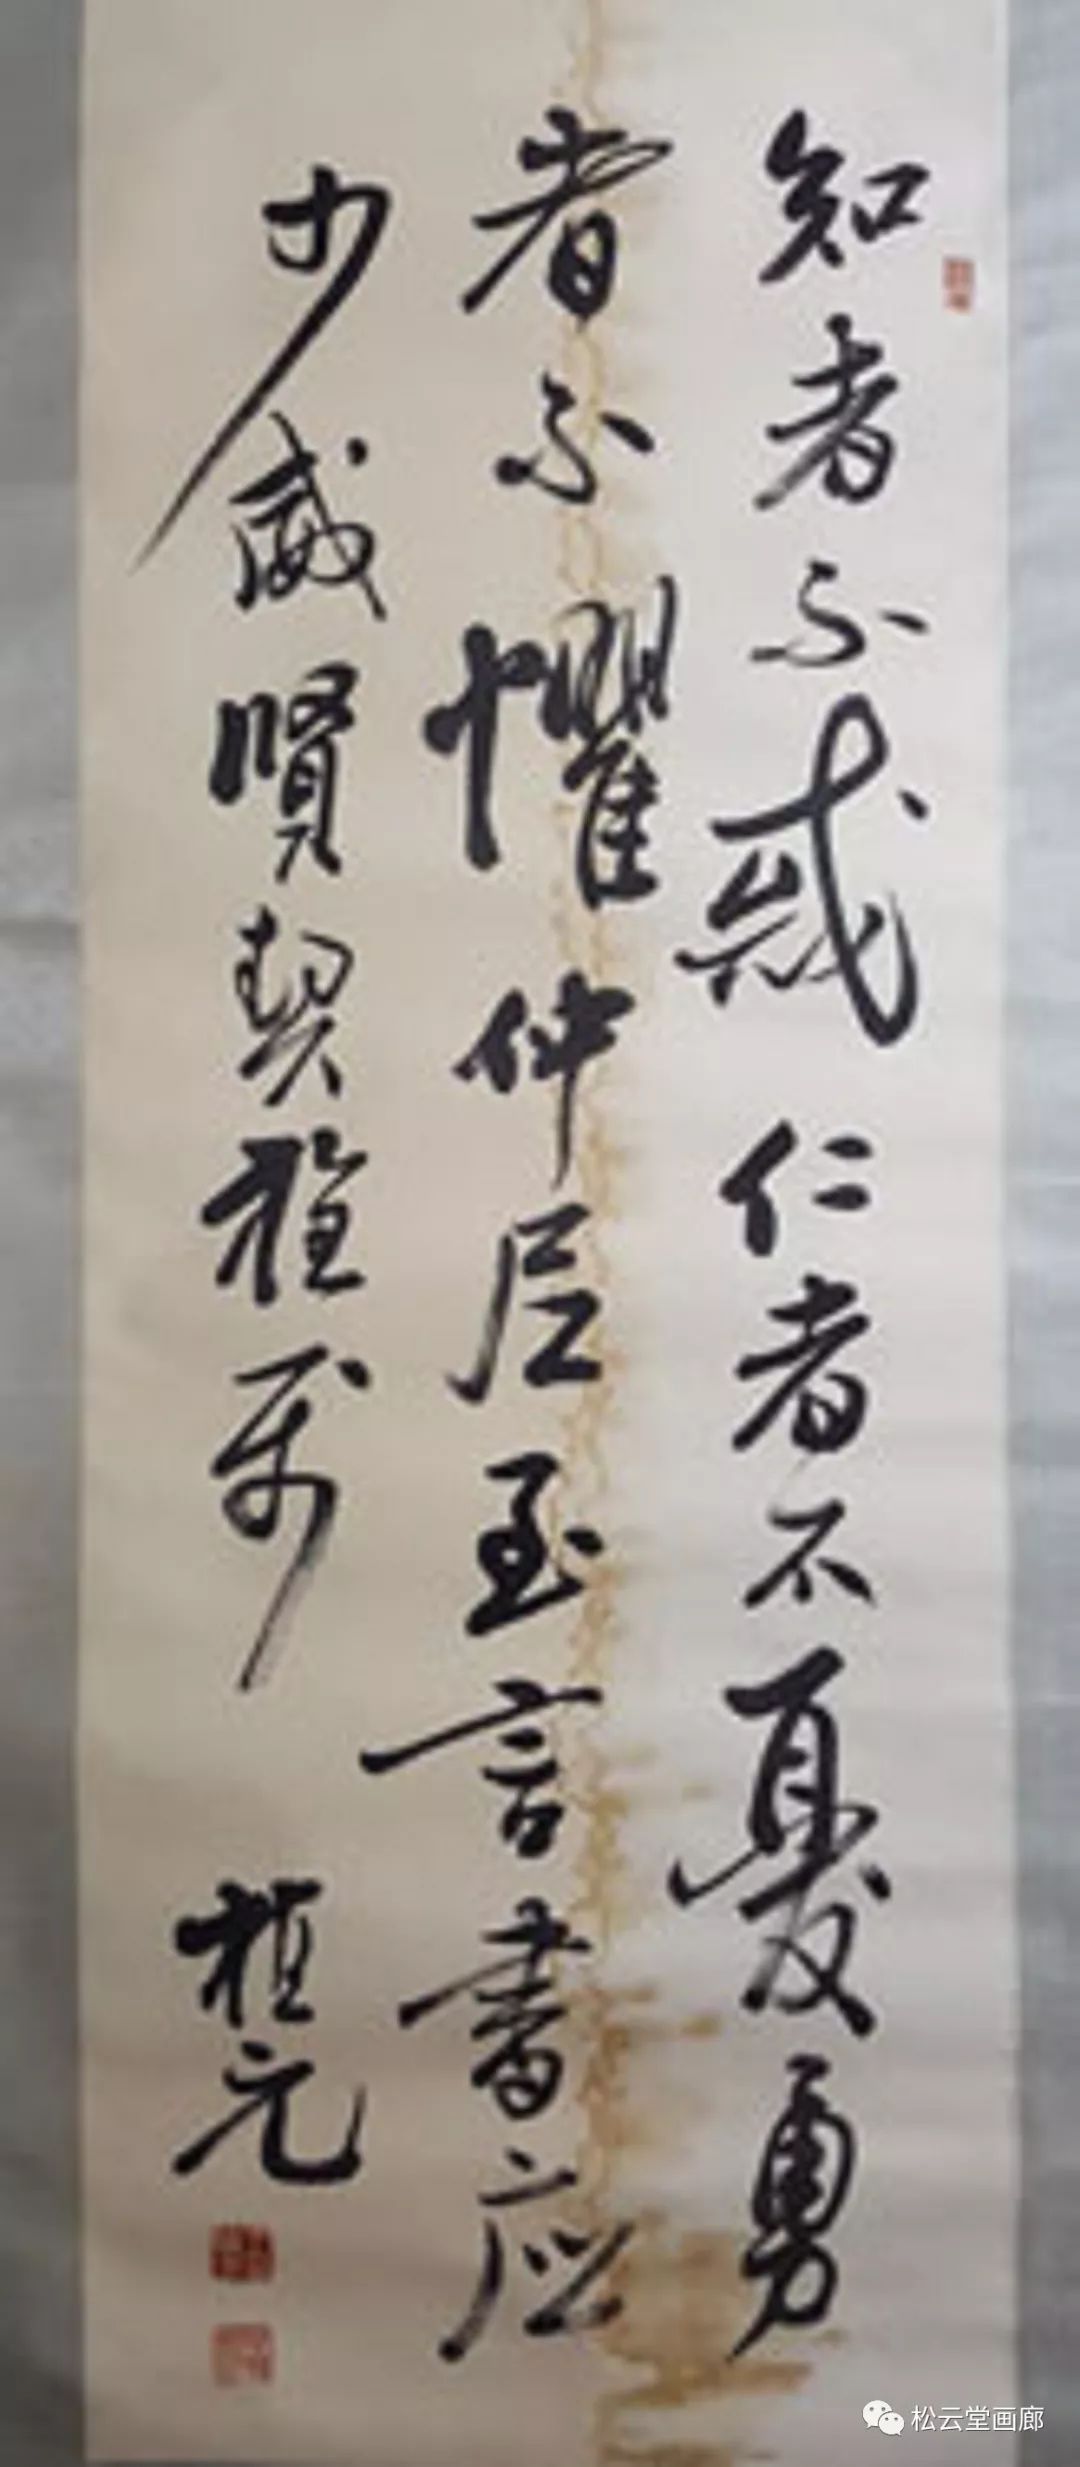 知者不惑仁者不憂勇
者不懼仲尼至言書應
少賢契雅属
植元
松云堂画廊